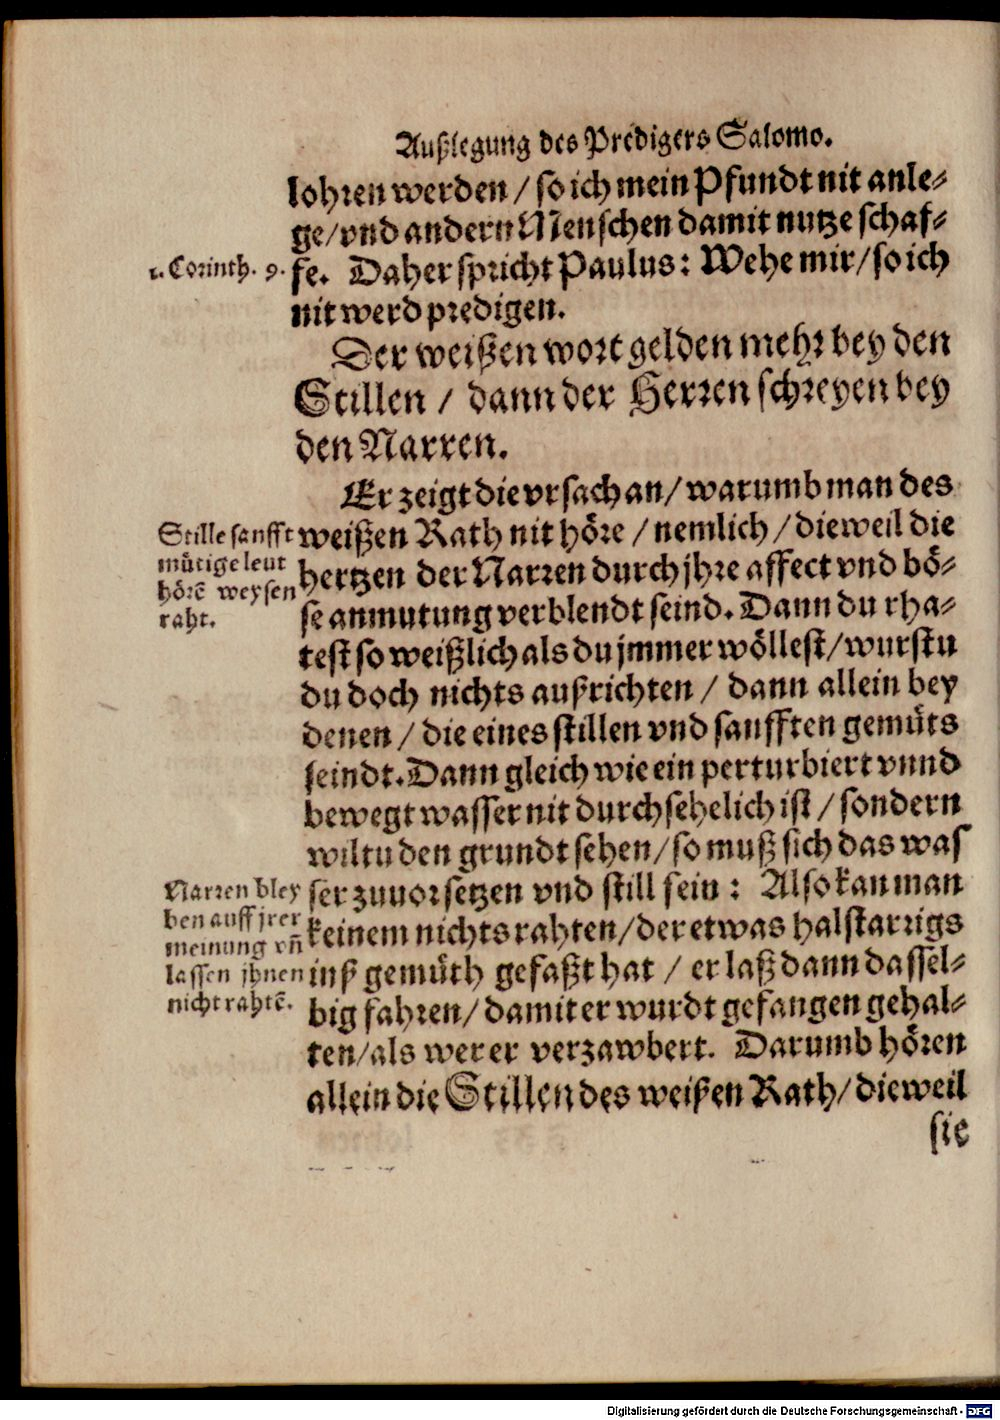 Außlegung des Predigers Salomo.
lohren werden / so ich mein Pfundt nit anle-
ge/vnd andern Menschen damit nutze schaf-
1. Corinth. 9.
fe. Daher spricht Paulus: Wehe mir/so ich
nit werd predigen.
Der weißen wort gelden mehr bey den
Stillen / dann der Herren schreyen bey
den Narren.
Er zeigt die vrsach an/warumb man des
Stille sanfft
mütige leut
hörẽ weysen
raht.
weißen Rath nit höre / nemlich / dieweil die
hertzen der Narren durch jhre affect vnd bö-
se anmutung verblendt seind. Dann du rha-
test so weißlich als du jmmer wöllest/wurstu
du doch nichts außrichten / dann allein bey
denen / die eines stillen vnd sanfften gemüts
seindt. Dann gleich wie ein perturbiert vnnd
bewegt wasser nit durchsehelich ist / sondern
wiltu den grundt sehen/so muß sich das was
Narren bley
ben auff jrer
meinung vñ
lassen jhnen
nicht rahtẽ.
ser zuuor setzen vnd still sein: Also kan man
keinem nichts rahten/der etwas halstarrigs
inß gemüth gefaßt hat / er laß dann dassel-
big fahren/damit er wurdt gefangen gehal-
ten/als wer er verzawbert. Darumb hören
allein die Stillen des weißen Rath/dieweil
sie
Digitalisierung gefördert durch die Deutsche Forschungsgemeinschaft - DFG